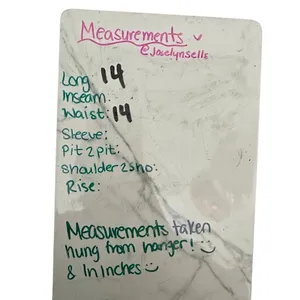 Measurements
@jocelynsells
Long 14
Inseam:
Waist: 14
Sleeve:
Pit 2 pit:
Shoulder 2 sho:
Rise:
Measurements taken
hung from hanger!
& In Inches